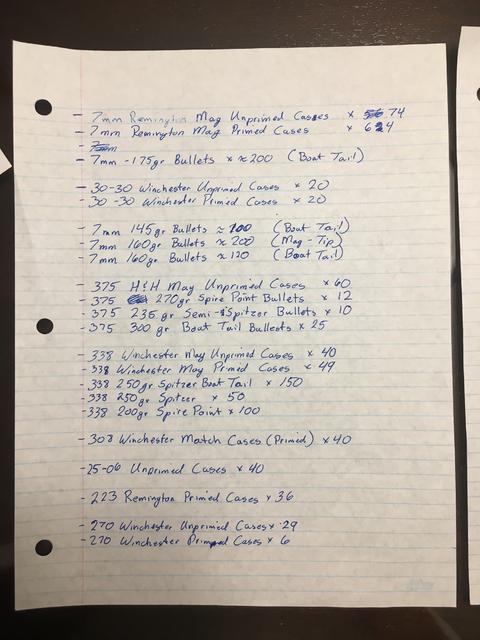 - 7mm Remington Mag Unprimed Cases x 74
- 7mm Remington Mag Primed Cases x 64
- 7mm
- 7mm - 175gr Bullets x ≈200 (Boat Tail)
- 30-30 Winchester Unprimed Cases x 20
- 30-30 Winchester Primed Cases x 20
- 7mm 145gr Bullets ≈ 100 (Boat Tail)
- 7mm 160gr Bullets ≈ 200 (Mag-Tip)
- 7mm 160gr Bullets ≈ 120 (Boat Tail)
- 375 H&H Mag Unprimed Cases x 60
- 375 270gr Spire Point Bullets x 12
- 375 235gr Semi-Spitzer Bullets x 10
- 375 300gr Boat Tail Bullets x 25
- 338 Winchester Mag Unprimed Cases x 40
- 338 Winchester Mag Primed Cases x 49
- 338 250gr Spitzer Boat Tail x 150
- 338 250gr Spitzer x 50
- 338 200gr Spire Point x 100
- 308 Winchester Match Cases (Primed) x 40
- 25-06 Unprimed Cases x 40
- 223 Remington Primed Cases x 36
- 270 Winchester Unprimed Cases x 29
- 270 Winchester Primed Cases x 6